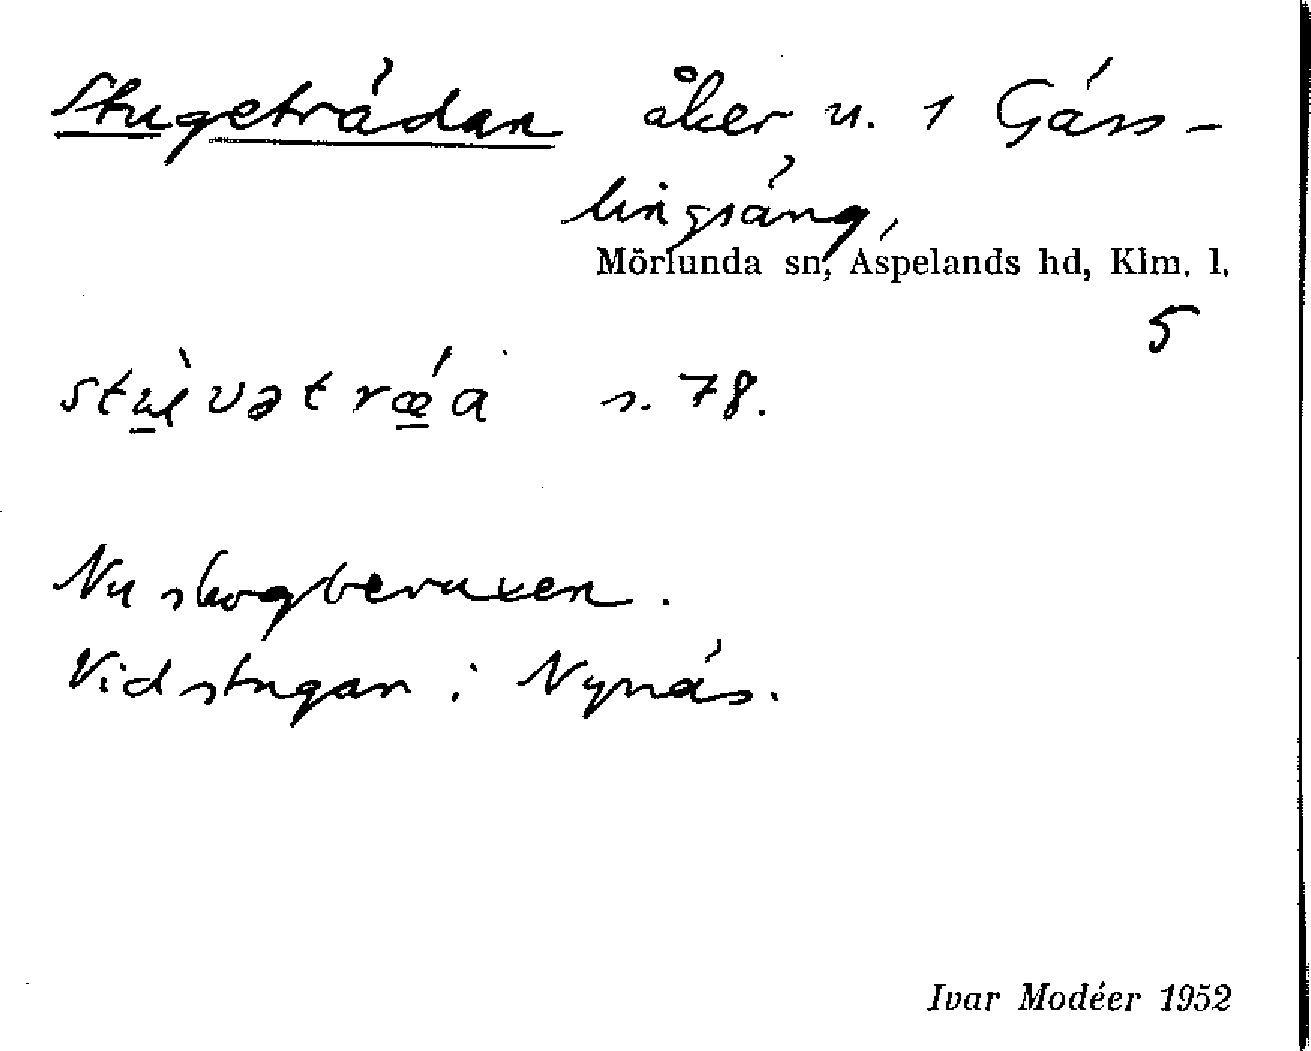 Stugeträdan åker u. 1 Gäss-
lingsäng,
Mörlunda sn, Aspelands hd, Klm. l.
5
s. 78.
Nu skogbevuxen.
Vid stugan i Nynäs.
Ivar Modéer 1952